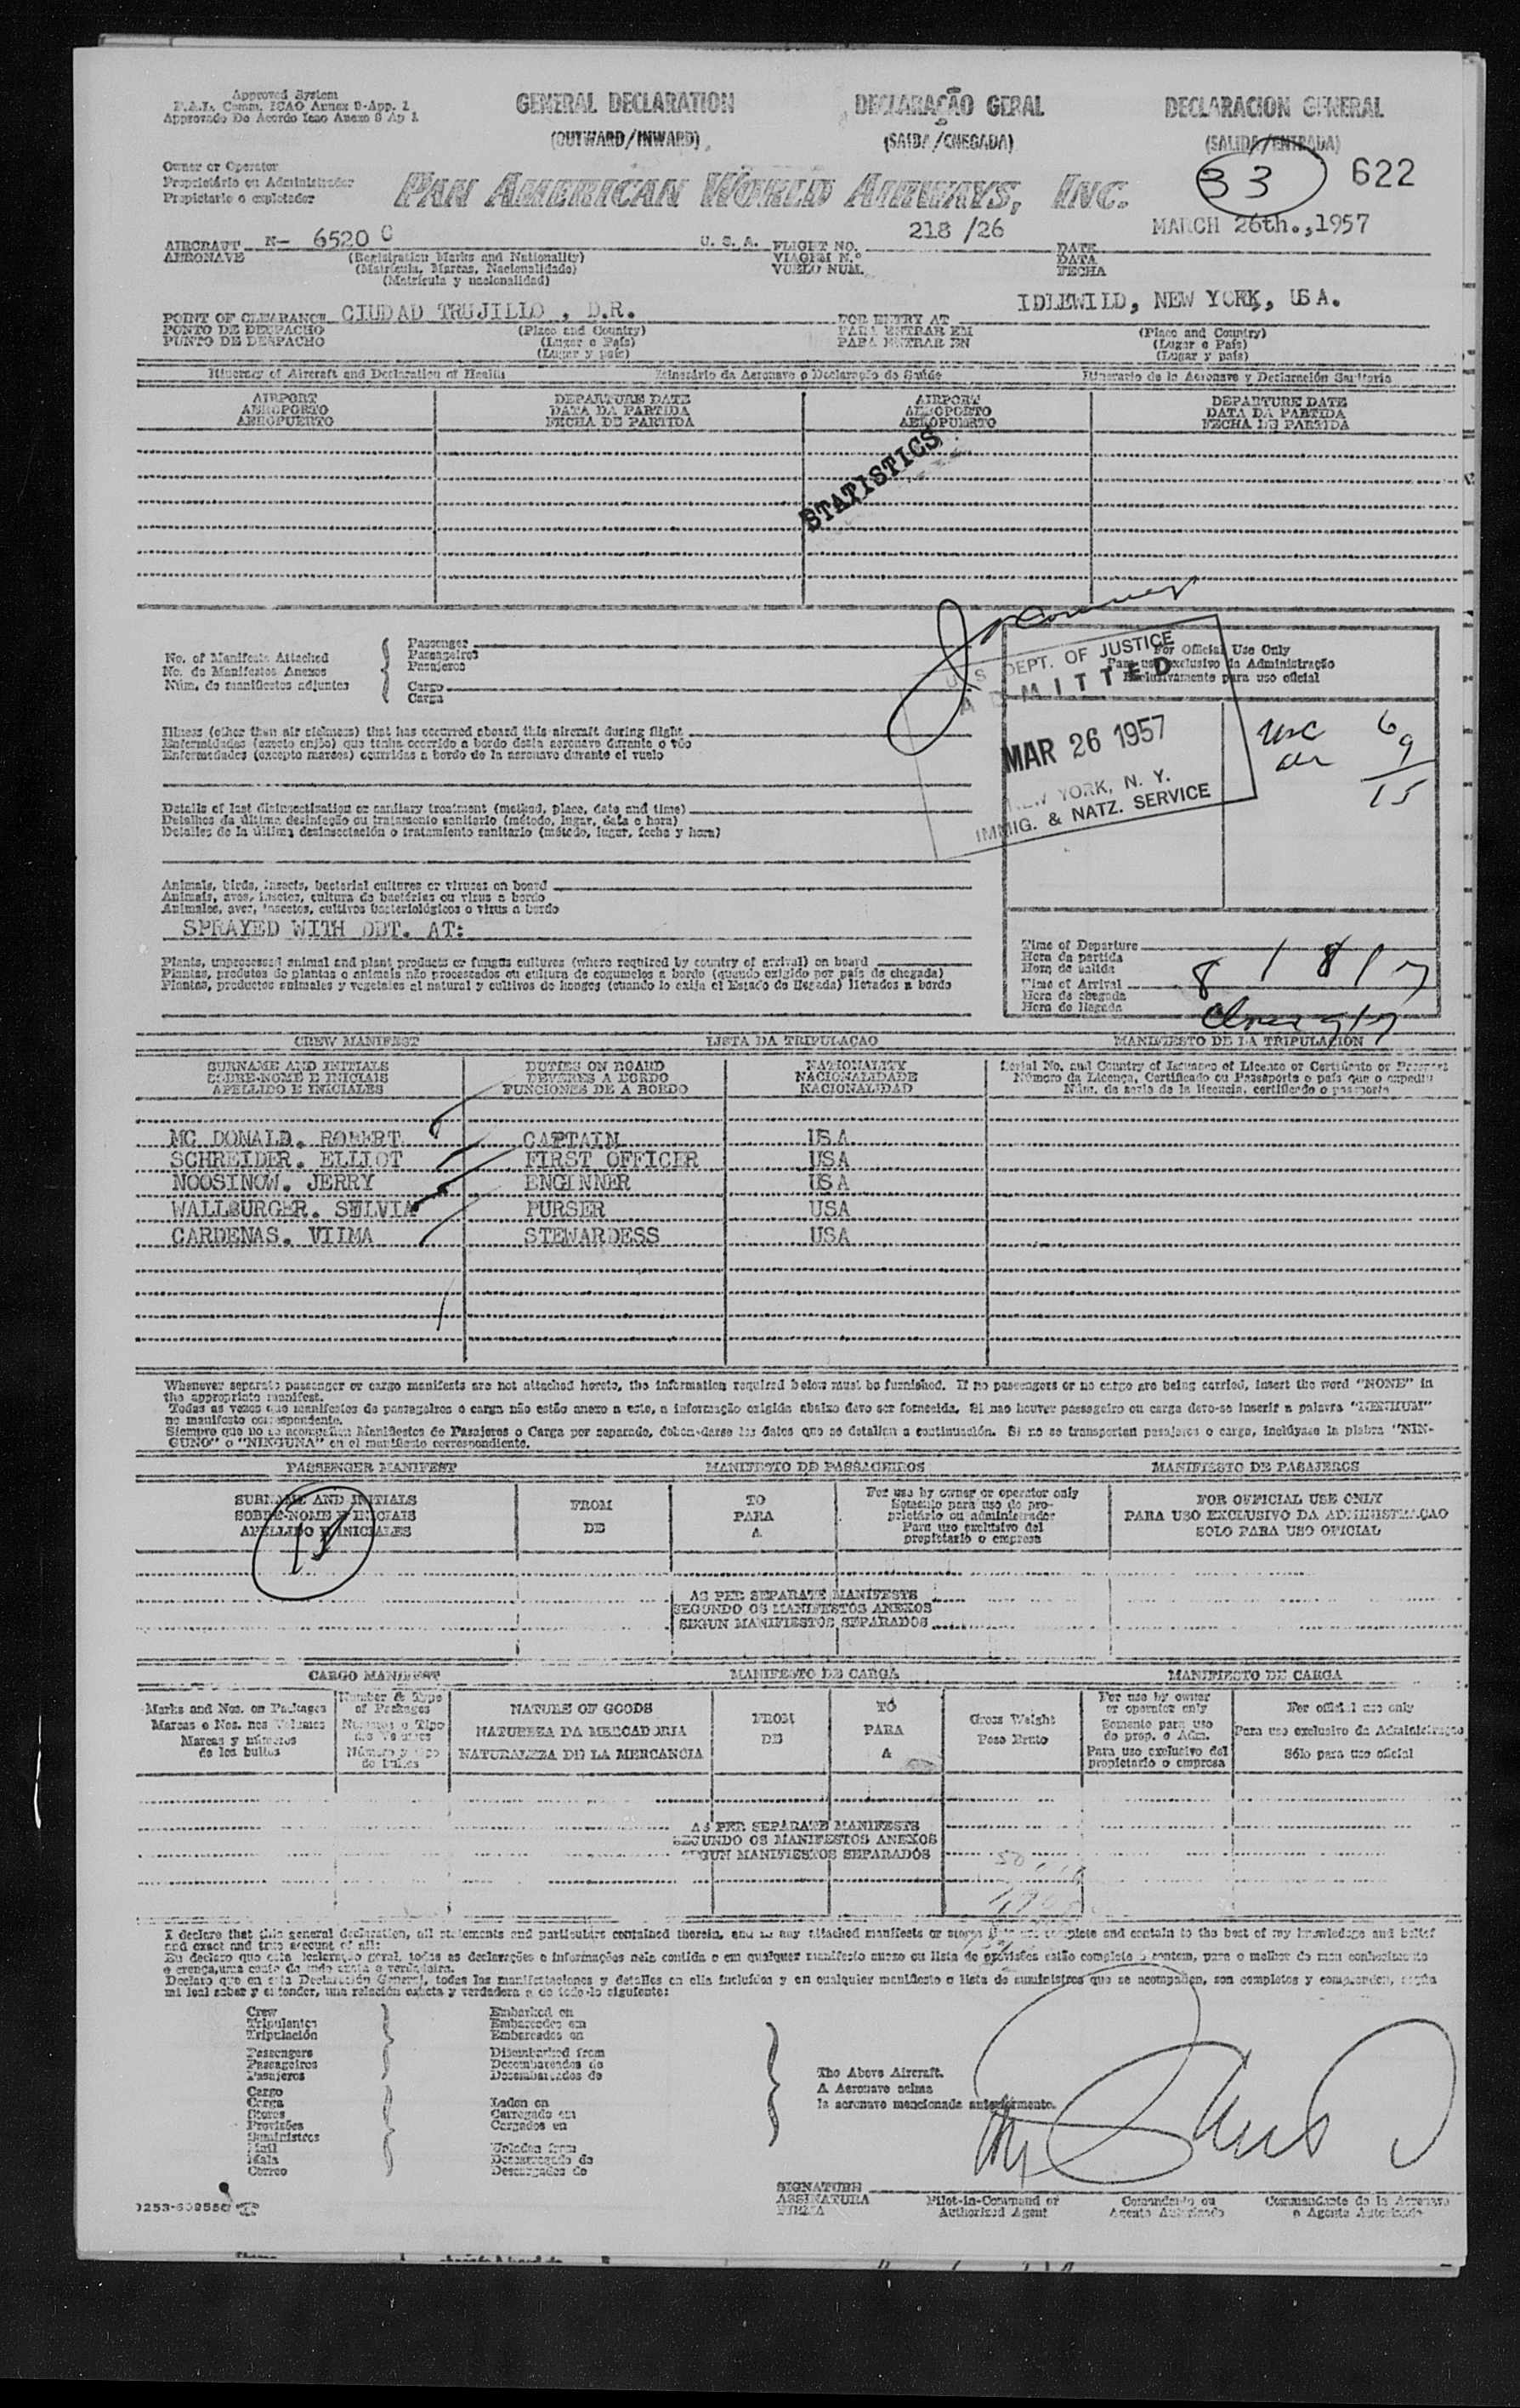 Approved System
F.A.L. Comm. ICAO Annex 9-App. 1
Approvado De Acordo Icao Anexo 9 Ap 1
GENERAL DECLARATION
(OUTWARD/INWARD)
DECLARAÇÃO GERAL
(SAIDA/CHEGADA)
DECLARACION GENERAL
(SALIDA/ENTRADA)
33
622
Owner or Operator
Proprietário ou Administrador
Propietario o explotador
PAN AMERICAN WORLD AIRWAYS, INC.
AIRCRAFT N- 6520 C U. S. A. FLIGHT NO. 218 /26 DATE MARCH 26th.,1957
AERONAVE (Registration Marks and Nationality) VIAGEM N.º DATA
(Matrícula, Marcas, Nacionalidade) VUELO NUM. FECHA
(Matrícula y nacionalidad)
POINT OF CLEARANCE CIUDAD TRUJILLO , D.R. FOR ENTRY AT IDLEWILD, NEW YORK, USA.
PONTO DE DESPACHO (Place and Country) PARA ENTRAR EM (Place and Country)
PUNTO DE DESPACHO (Lugar e País) PARA ENTRAR EN (Lugar e País)
(Lugar y país) (Lugar y país)
Itinerary of Aircraft and Declaration of Health Itinerário da Aeronave e Declaração de Saúde Itinerario de la Aeronave y Declaración Sanitaria
AIRPORT DEPARTURE DATE AIRPORT DEPARTURE DATE
AEROPORTO DATA DA PARTIDA AEROPORTO DATA DA PARTIDA
AEROPUERTO FECHA DE PARTIDA AEROPUERTO FECHA DE PARTIDA
STATISTICS
No. of Manifests Attached
No. de Manifestos Anexos
Núm. de manifiestos adjuntos
Passenger
Passageiros
Pasajeros
Cargo
Carga
For Official Use Only
Para uso exclusivo da Administração
Exclusivamente para uso oficial
U. S. DEPT. OF JUSTICE
ADMITTED
MAR 26 1957
NEW YORK, N. Y.
IMMIG. & NATZ. SERVICE
usc 6
aln 9
15
Illness (other than air sickness) that has occurred aboard this aircraft during flight
Enfermidades (exceto enjôo) que tenha ocorrido a bordo desta aeronave durante o vôo
Enfermedades (excepto mareos) ocurridas a bordo de la aeronave durante el vuelo
Details of last disinsectization or sanitary treatment (method, place, date and time)
Detalhes da última desinfeção ou tratamento sanitario (método, lugar, data e hora)
Detalles de la última desinsectación o tratamiento sanitario (método, lugar, fecha y hora)
Animals, birds, insects, bacterial cultures or viruses on board
Animais, aves, insetos, cultura de bactérias ou virus a bordo
Animales, aves, insectos, cultivos bacteriológicos o virus a bordo
SPRAYED WITH DDT. AT:
Plants, unprocessed animal and plant products or fungus cultures (where required by country of arrival) on board
Plantas, produtos de plantas o animais não processados ou cultura de cogumelos a bordo (quando exigido por país de chegada)
Plantas, productos animales y vegetales al natural y cultivos de hongos (cuando lo exija el Estado de llegada) llevados a bordo
Time of Departure
Hora da partida
Hora de salida
Time of Arrival
Hora de chegada
Hora de llegada
8 1 8 17
CREW MANIFEST LISTA DA TRIPULAÇAO MANIFIESTO DE LA TRIPULACIÓN
SURNAME AND INITIALS DUTIES ON BOARD NATIONALITY Serial No. and Country of Issuance of License or Certificate or Passport
SOBRE-NOME E INICIAIS DEVERES A BORDO NACIONALIDADE Número da Licença, Certificado ou Passaporte e país que o expediu
APELLIDO E INICIALES FUNCIONES DE A BORDO NACIONALIDAD Núm. de serie de la licencia, certificado o pasaporte
MC DONALD. ROBERT CAPTAIN USA
SCHREIDER. ELLIOT FIRST OFFICER USA
NOOSINOW. JERRY ENGINNER USA
WALLBURGER. SELVIA PURSER USA
CARDENAS. VILMA STEWARDESS USA
Whenever separate passenger or cargo manifests are not attached hereto, the information required below must be furnished. If no passengers or no cargo are being carried, insert the word "NONE" in
the appropriate manifest.
Todas as vezes que manifestos de passageiros e carga não estão anexo a este, a informação exigida abaixo deve ser fornecida. Si nao houver passageiro ou carga deve-se inserir a palavra "NENHUM"
no manifesto correspondente.
Siempre que no se acompañen Manifiestos de Pasajeros o Carga por separado, deben darse los datos que se detallan a continuación. Si no se transportan pasajeros o carga, inclúyase la plabra "NIN-
GUNO" o "NINGUNA" en el manifiesto correspondiente.
PASSENGER MANIFEST MANIFESTO DE PASSAGEIROS MANIFIESTO DE PASAJEROS
SURNAME AND INITIALS FROM TO For use by owner or operator only FOR OFFICIAL USE ONLY
SOBRE-NOME E INICIAIS DE PARA Somento para uso do pro- PARA USO EXCLUSIVO DA ADMINISTRAÇAO
APELLIDO E INICIALES A prietário ou administrador SOLO PARA USO OFICIAL
Para uso exclusivo del
propietario o empresa
AS PER SEPARATE MANIFESTS
SEGUNDO OS MANIFESTOS ANEXOS
SEGUN MANIFIESTOS SEPARADOS
CARGO MANIFEST MANIFESTO DE CARGA MANIFIESTO DE CARGA
Marks and Nos. on Packages Number & Type of Packages NATURE OF GOODS FROM TO Gross Weight For use by owner or operator only For official use only
Marcas e Nos. nos Volumes Numeros e Tipo dos Volumes NATUREZA DA MERCADORIA DE PARA Peso Bruto Somento para uso do prop. e Adm. Para uso exclusivo da Administraçao
Marcas y números de los bultos Número y tipo de bultos NATURALEZA DE LA MERCANCIA A Para uso exclusivo del propietario o empresa Sólo para uso oficial
AS PER SEPARATE MANIFESTS
SEGUNDO OS MANIFESTOS ANEXOS
SEGUN MANIFIESTOS SEPARADOS
I declare that this general declaration, all statements and particulars contained therein, and in any attached manifests or stores lists are complete and contain to the best of my knowledge and belief
and exact and true account of all:
Eu declaro que esta Declaração geral, todas as declarações e informações nela contida e em qualquer manifesto anexo ou lista de provisões estão completo e contem, para o melhor do meu conhecimento
e crença, uma conta de tudo exata e verdadeira.
Declaro que en esta Declaración General, todas las manifestaciones y detalles en ella incluídos y en cualquier manifiesto o lista de suministros que se acompañen, son completos y comprenden, según
mi leal saber y entender, una relación exacta y verdadera a de todo lo siguiente:
Crew Embarked on
Tripulantes Embarcados em
Tripulación Embarcados en
Passengers Disembarked from
Passageiros Desembarcados de
Pasajeros Desembarcados de
Cargo
Carga Laden on
Stores Carregado em
Provisões Cargados en
Suministros
Mail Unladen from
Mala Descarregado de
Correo Descargados de
The Above Aircraft.
A Aeronave acima
la aeronave mencionada anteriormente.
SIGNATURE
ASSINATURA
FIRMA
Pilot-in-Command or Authorized Agent
Comandante ou Agente Autorizado
Comandante de la Aeronave o Agente Autorizado